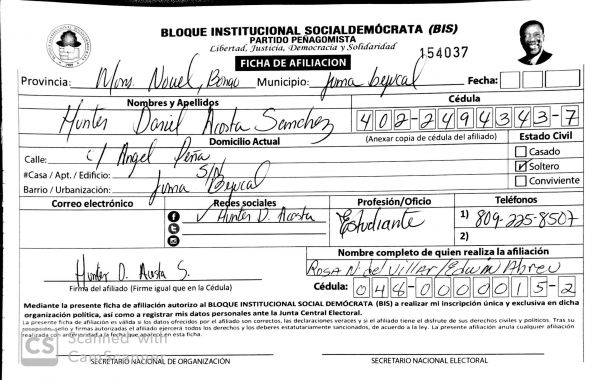 BLOQUE INSTITUCIONAL SOCIALDEMÓCRATA (BIS)
PARTIDO PEÑAGOMISTA
Libertad, Justicia, Democracia y Solidaridad
154037
FICHA DE AFILIACION
Provincia: Mons. Nouel, Bonao Municipio: Juma bejucal Fecha:
Nombres y Apellidos Cédula
Hunter Daniel Acosta Sanchez 402-2494343-7
Domicilio Actual (Anexar copia de cédula del afiliado) Estado Civil
Calle: c/ Angel Peña Casado
#Casa / Apt. / Edificio: S/n Soltero
Barrio / Urbanización: Juma Bejucal Conviviente
Correo electrónico Redes sociales Profesión/Oficio Teléfonos
Hunter D. Acosta Estudiante 1) 809-225-8507
2)
Nombre completo de quien realiza la afiliación
Hunter D. Acosta S. Rosa N de Villar/Edwin Abreu
Firma del afiliado (Firme igual que en la Cédula) Cédula: 048-0000015-2
Mediante la presente ficha de afiliación autorizo al BLOQUE INSTITUCIONAL SOCIAL DEMÓCRATA (BIS) a realizar mi inscripción única y exclusiva en dicha
organización política, así como a registrar mis datos personales ante la Junta Central Electoral.
La presente ficha de afiliación es válida si los datos ofrecidos por el afiliado son correctos, las declaraciones veraces y si el afiliado tiene el disfrute de sus derechos civiles y políticos. Tras su
recepción, sello y firmas autorizadas el afiliado ejercerá todos los derechos y los deberes estatutariamente sancionados, de acuerdo a la ley. La presente afiliación anula cualquier afiliación
realizada con anterioridad a la fecha que aparece en esta ficha.
CS Scanned with
CamScanner
SECRETARIO NACIONAL DE ORGANIZACIÓN SECRETARIO NACIONAL ELECTORAL